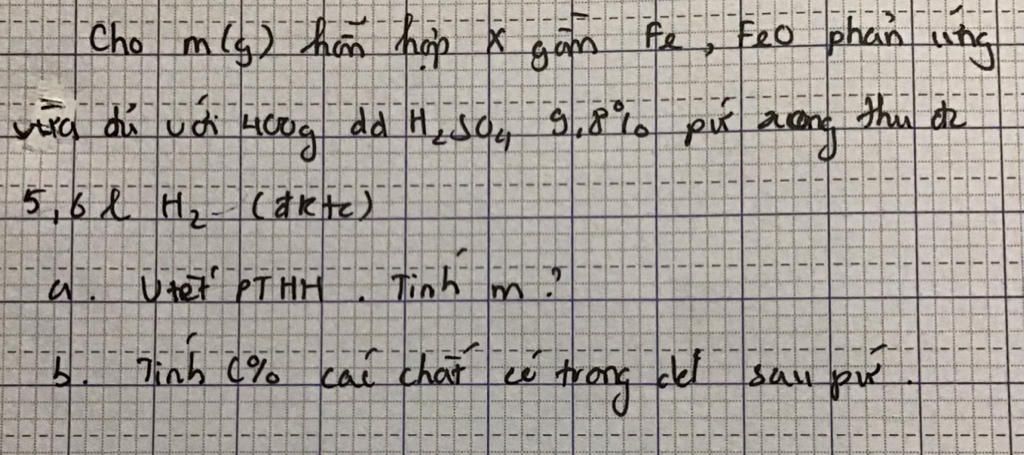 Cho m(g) hỗn hợp X gồm Fe, FeO phản ứng
vừa đủ với 400g dd H₂SO₄ 9,8% pứ xong thu đc
5,6 l H₂ (đktc)
a. Viết PTHH. Tính m?
b. Tính C% các chất có trong dd sau pứ.